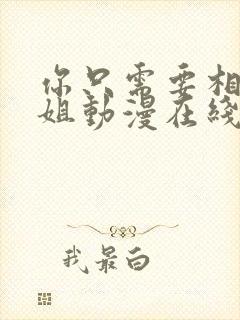 你只需要相
姐動漫在綫
我最白